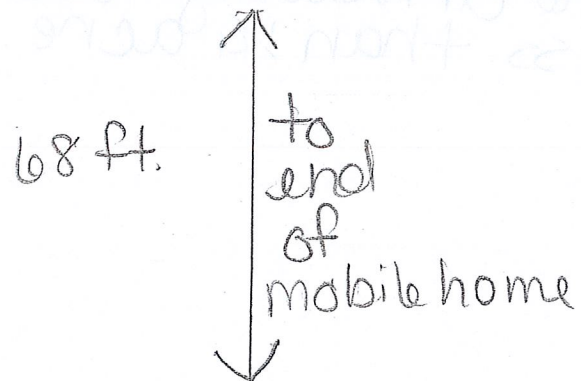 68 ft.
to
end
of
mobile home